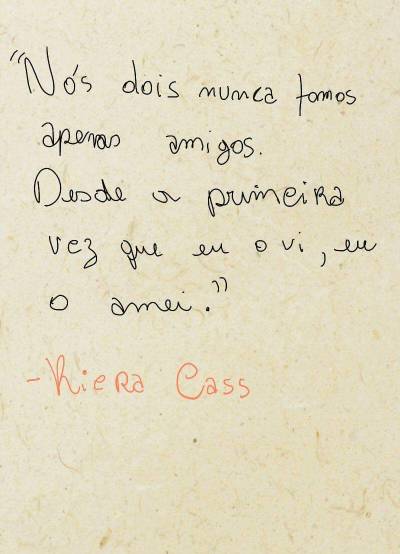 "Nós dois nunca fomos
apenas amigos.
Desde a primeira
vez que eu o vi, eu
o amei."
-Kiera Cass